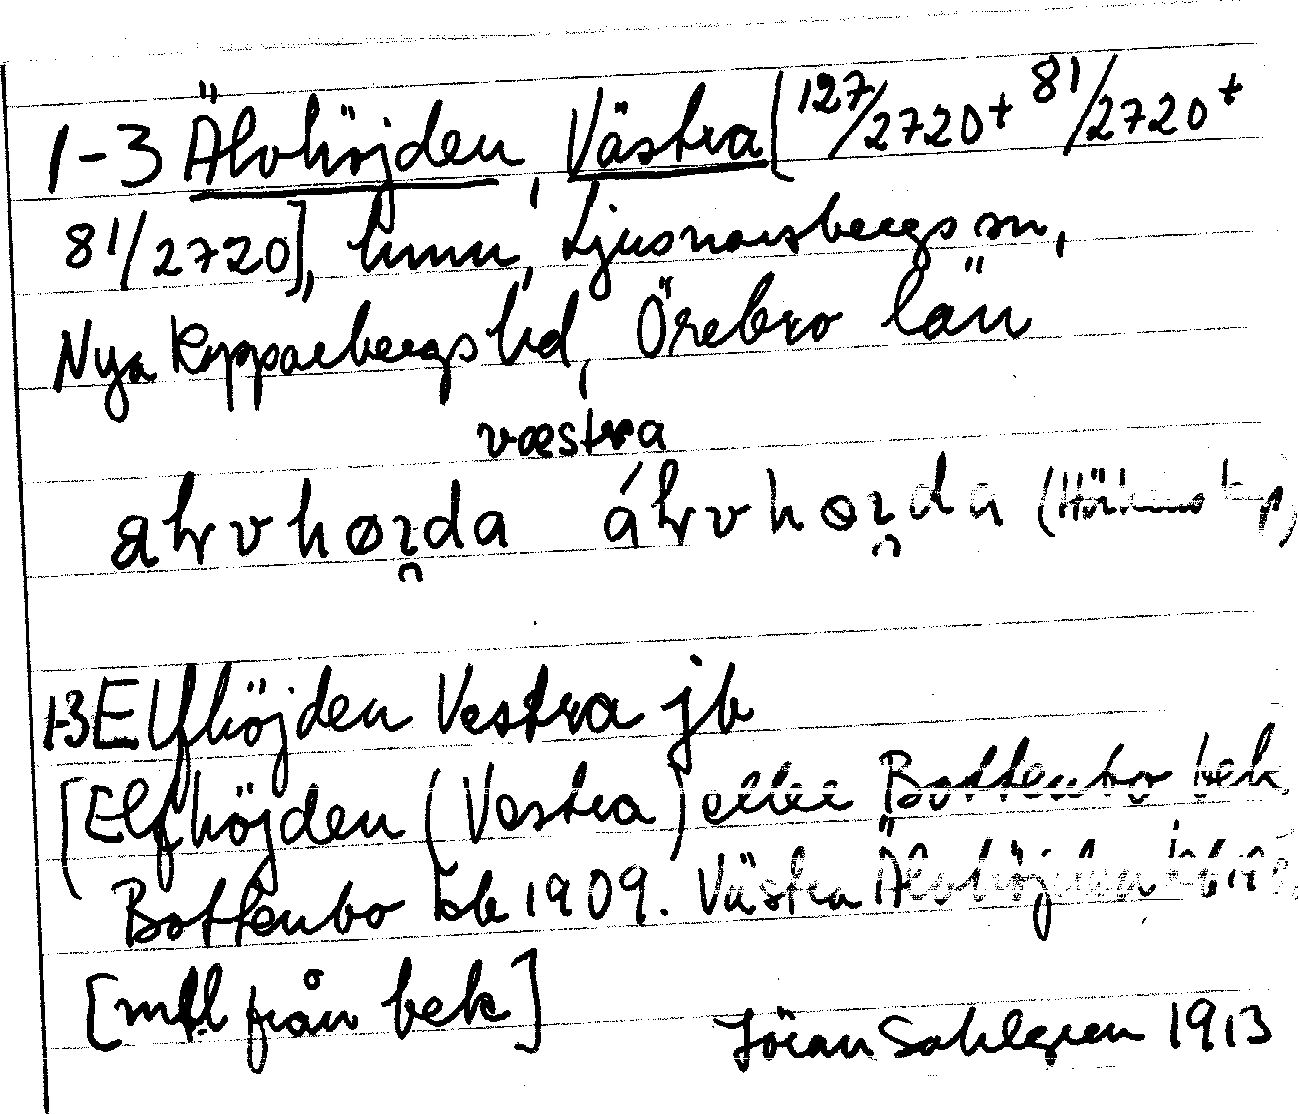 1-3 Älvhöjden, Västra [127/2720 + 81/2720 +
81/2720], hmn, Ljusnarsbergs sn,
Nya Kopparbergs hd, Örebro län
væstra
(Hörkens
1-3 Elfhöjden Vestra jb
[Elfhöjden (Vestra) eller Bottenbo bek,
Bottenbo kb 1909. Västra Älvhöjden
från bek]
Jöran Sahlgren 1913